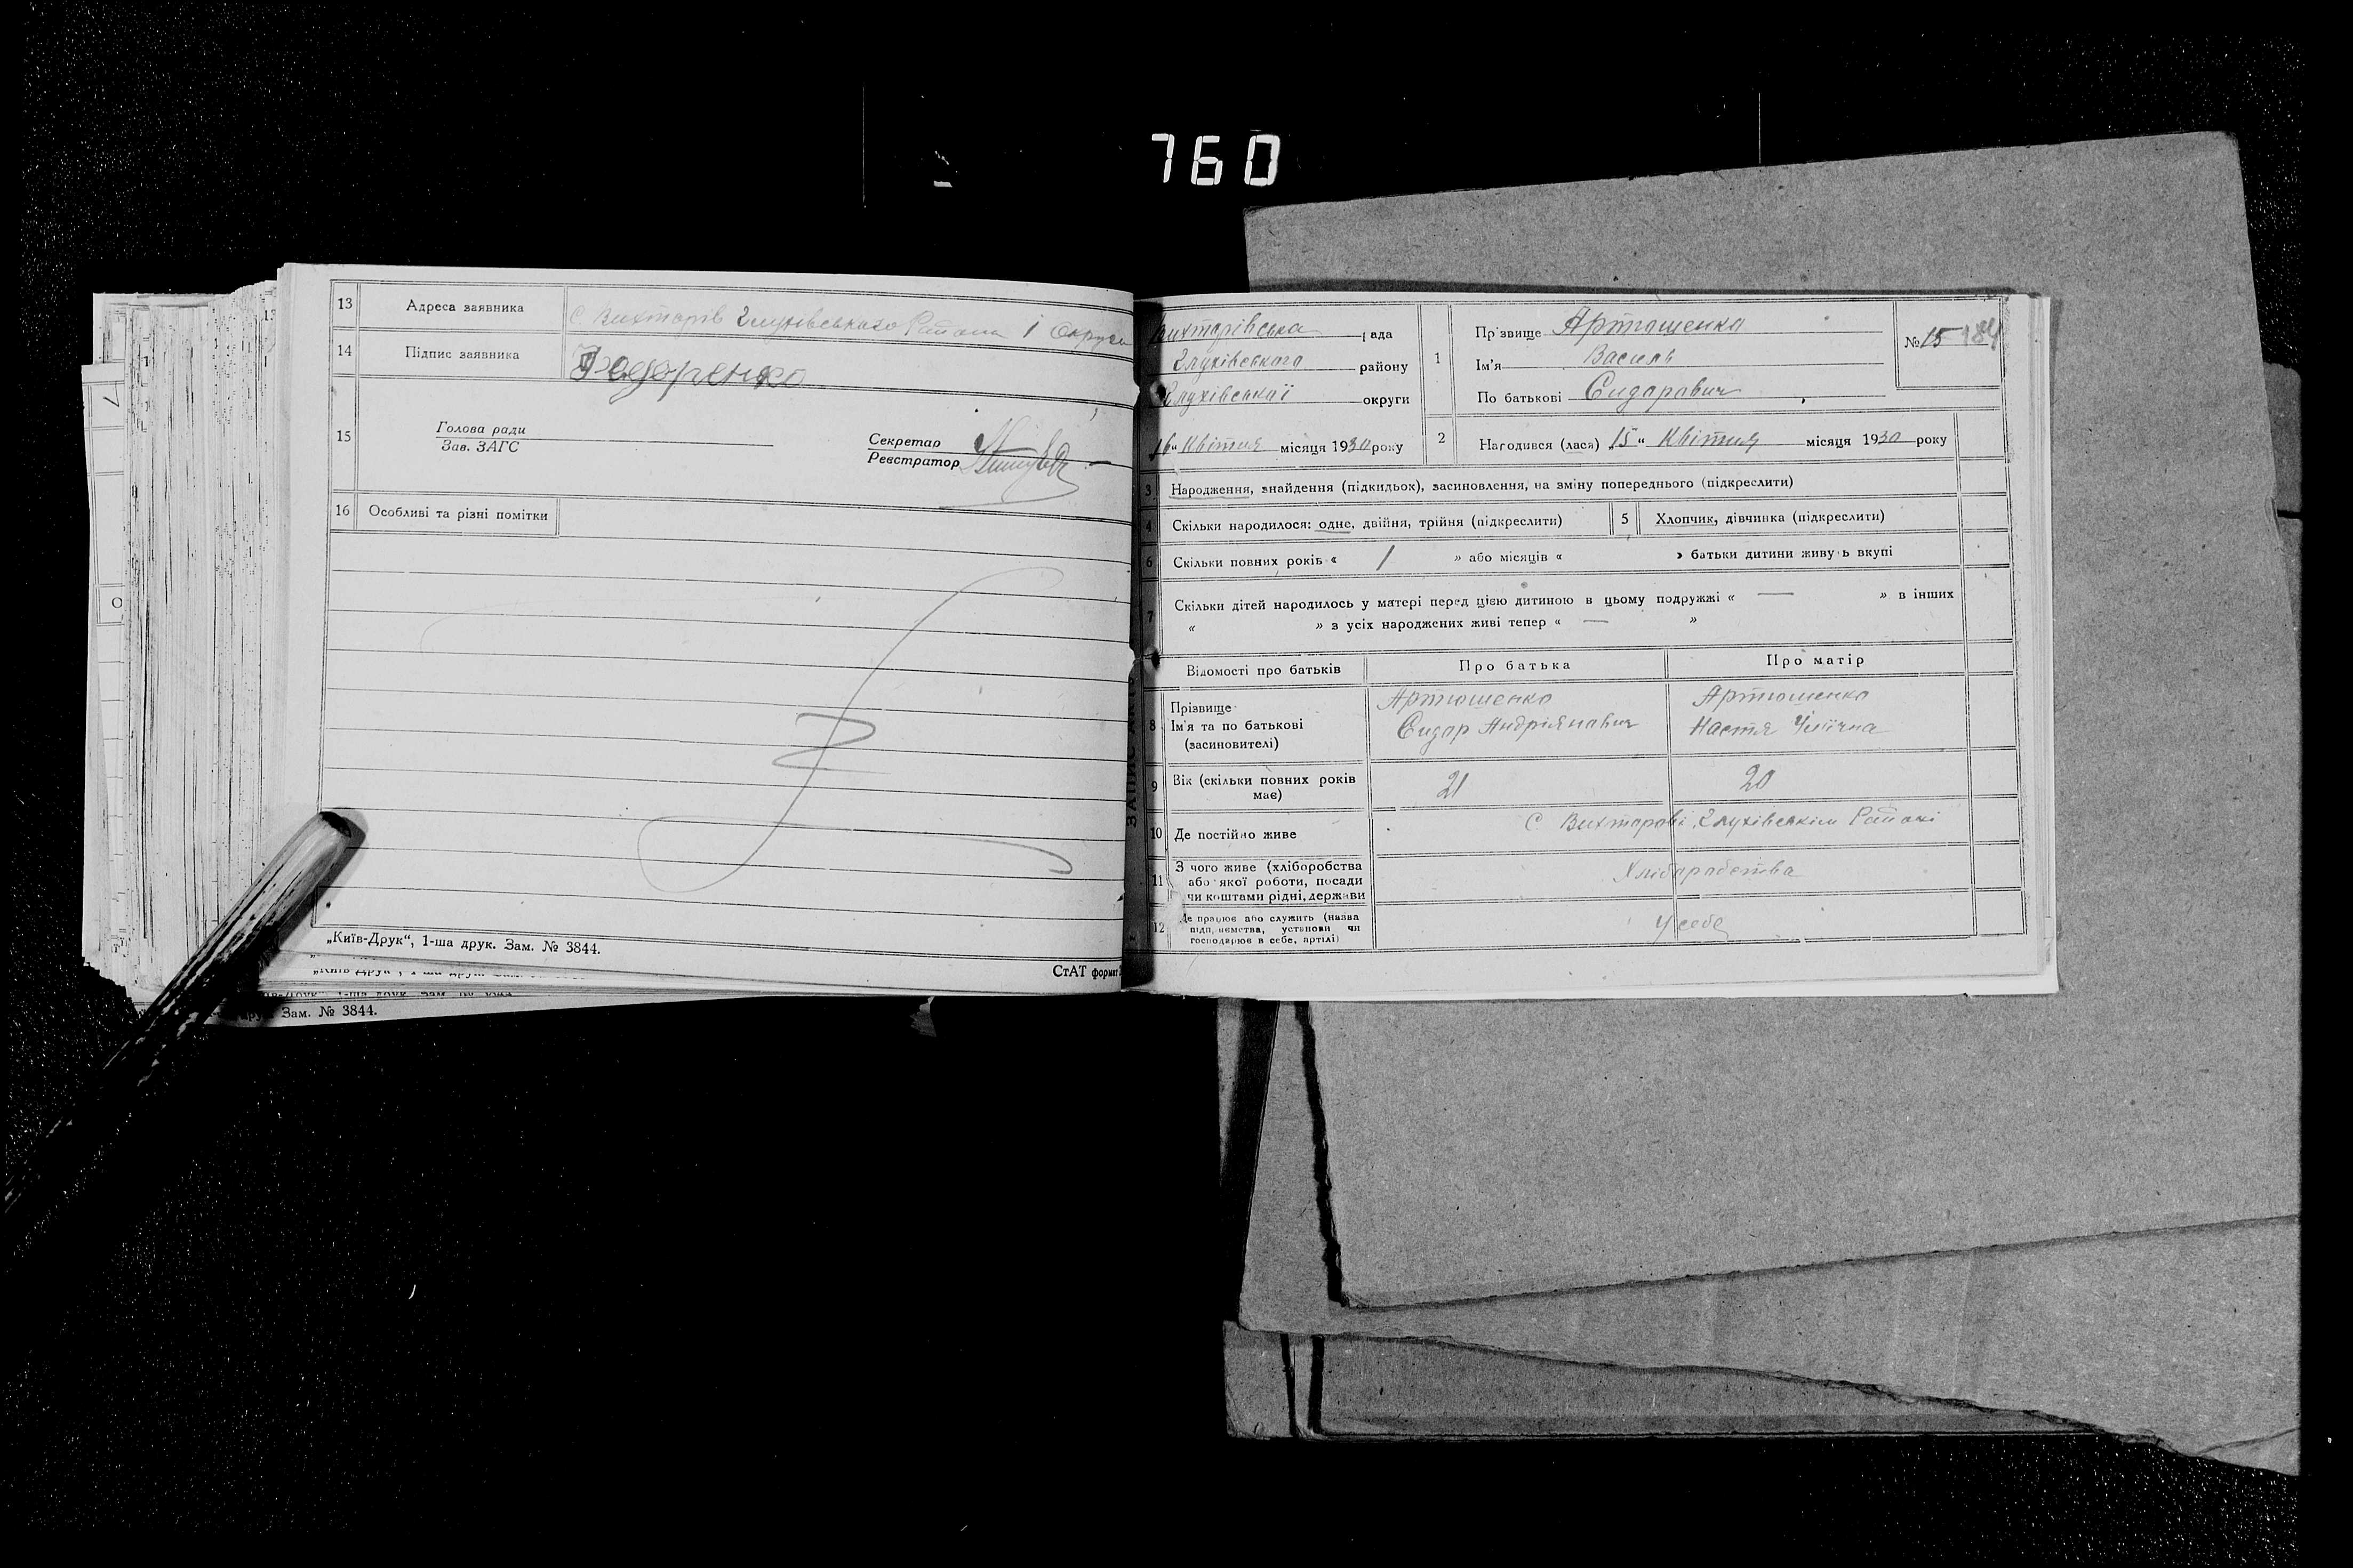 760
13 Адреса заявника с. Вихторів Глухівського Району і Округи
14 Підпис заявника Федоренко
15 Голова ради
Зав. ЗАГС
Секретар
Реєстратор
16 Особливі та різні помітки
„Київ-Друк“, 1-ша друк. Зам. № 3844.
СтАТ формат
Зам. № 3844.
Вихторівська рада
Глухівського району
Глухівської округи
16 “ Квітня місяця 1930 року
1 Прізвище Артюшенко
Ім'я Василь
По батькові Сидарович
№ 15 184
2 Народився (лася) „15“ Квітня місяця 1930 року
3 Народження, знайдення (підкидьох), засиновлення, на зміну попереднього (підкреслити)
4 Скільки народилося: одне, двійня, трійня (підкреслити) 5 Хлопчик, дівчинка (підкреслити)
6 Скільки повних років « 1 » або місяців « » батьки дитини живуть вкупі
7 Скільки дітей народилось у матері перед цією дитиною в цьому подружжі « — » в інших
« » з усіх народжених живі тепер « — »
Відомості про батьків Про батька Про матір
8 Прізвище Артюшенко Артюшенко
Ім'я та по батькові Сидар Андріянавич Настя
(засиновителі)
9 Вік (скільки повних років 21 20
має)
10 Де постійно живе с Вихторові Глухівскім Районі
11 З чого живе (хліборобства Хлібарабства
або якої роботи, посади
чи коштами рідні, держави
12 Де працює або служить (назва У себе
підприємства, установи чи
господарює в себе, артілі)
ЗАПИС АКТУ